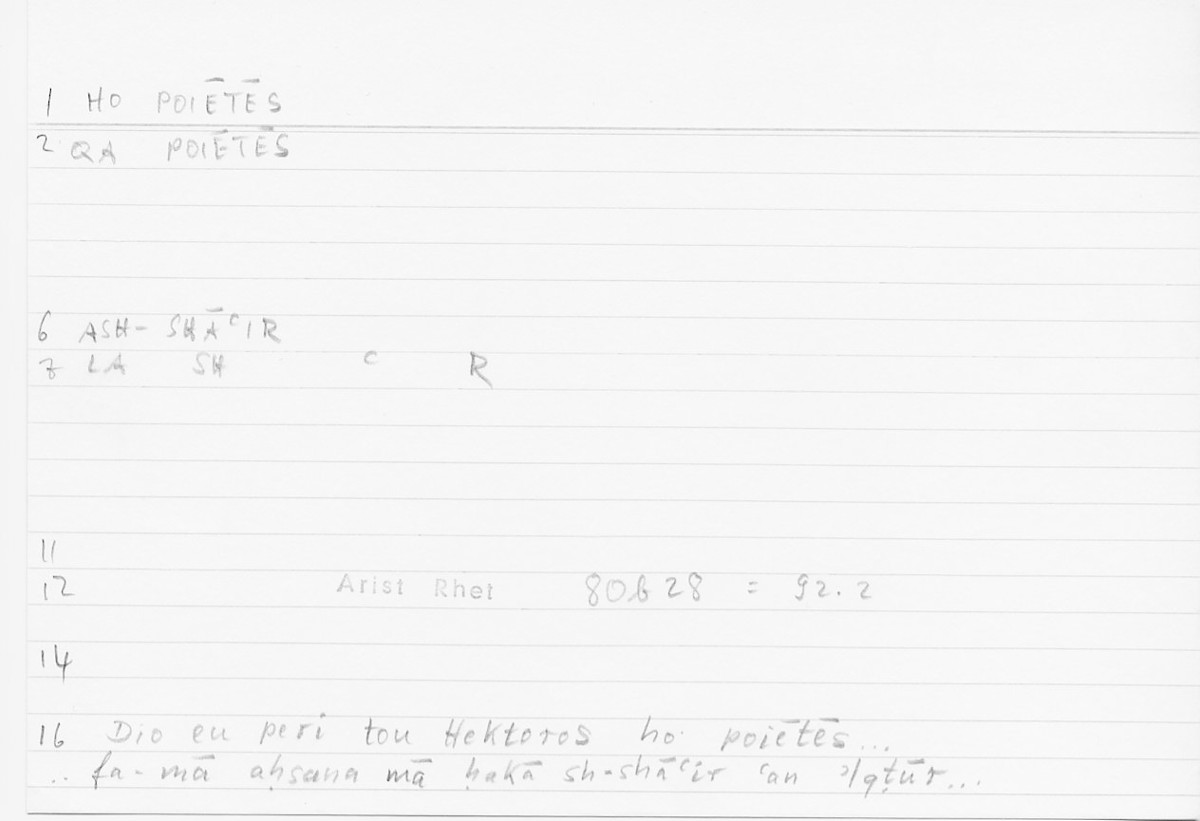 1 HO POIĒTĒS
2 QA POIĒTĒS
6 ASH-SHĀʿIR
7 LA SH ʿ R
11
12 Arist Rhet 80b28 = 92.2
14
16 Dio eu peri tou Hektoros ho poiētēs...
.. fa-mā aḥsana mā ḥakā sh-shāʿir ʿan ʾIqṭūr...